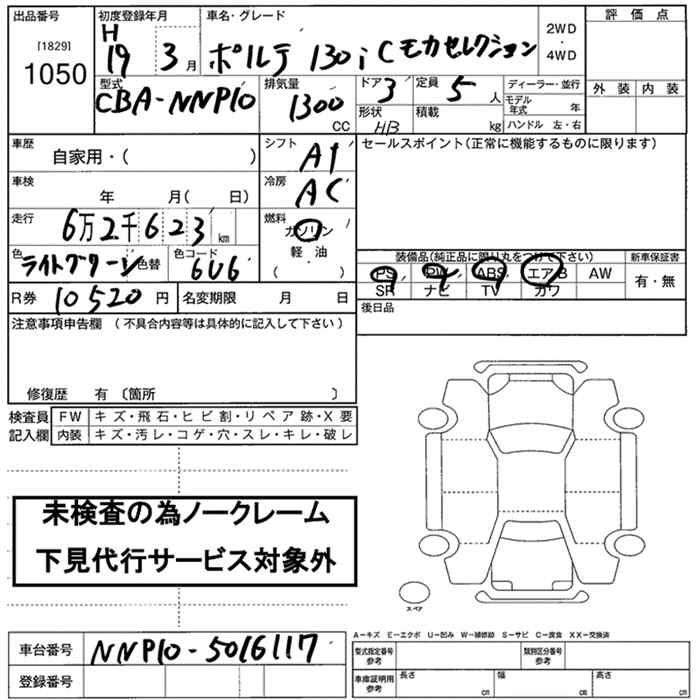 出品番号 初度登録年月 車名・グレード 評価点
[1829] 1050
H19 3月 ポルテ 130iCモカセレクション 2WD・4WD
型式 排気量 ドア 3 定員 5人 ディーラー・並行 外装 内装
CBA-NNP10 1300CC 形状 HB 積載 kg モデル年式 年
ハンドル 左・右
車歴 自家用・( ) シフト AT セールスポイント(正常に機能するものに限ります)
車検 年 月( 日) 冷房 AC
走行 6万2千623km 燃料 ガソリン・軽油・( )
色 ライトグリーン 色替 色コード 6U6 装備品(純正品に限り丸をつけて下さい) 新車保証書
PS PW ABS エアB AW 有・無
SR ナビ TV カワ
R券 10520円 名変期限 月 日 後日品
注意事項申告欄 (不具合内容等は具体的に記入して下さい)
修復歴 有 〔箇所 〕
検査員 FW キズ・飛石・ヒビ割・リペア跡・X要
記入欄 内装 キズ・汚レ・コゲ・穴・スレ・キレ・破レ
未検査の為ノークレーム
下見代行サービス対象外
スペア
A-キズ E-エクボ U-凹み W-補修跡 S-サビ C-腐食 XX-交換済
車台番号 NNP10-5016117 型式指定番号 参考 類別区分番号 参考
登録番号 車庫証明用 参考 長さ cm 幅 cm 高さ cm